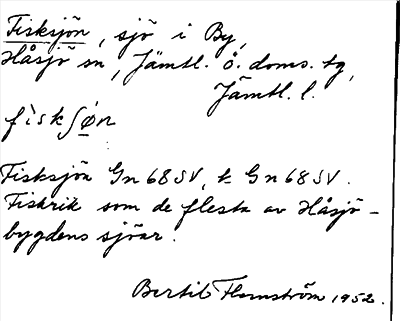 Fisksjön, sjö i By,
Håsjö sn, Jämtl. ö. doms. tg,
Jämtl. l.
fìskʃø̱n
Fisksjön Gn 68 SV, k Gn 68 SV.
Fiskrik som de flesta av Håsjö-
bygdens sjöar.
Bertil Flemström 1952.